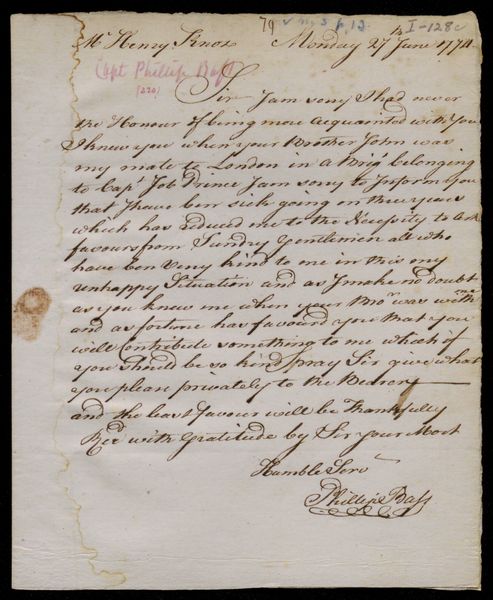 79 I-128c
Mr Henry Knox Monday 27th June 1774
Capt Phillip Bass
(220)
Sir I am sorry I had never
the Honour of being more acquainted with You
I knew you when your Brother John was
my mate to London in a Brig belonging
to Capt Job Prince I am sorry to Inform you
that I have ben sick going on three years
which has reduced me to the Necessity to Ask
favours from Sundry Gentlemen all who
have ben very kind to me in this my
unhappy Situation and as I make no doubt
as you knew me when your Bror was with me
and as fortune has favourd you that you
will Contribute something to me which if
you should be so kind pray Sir give what
you please privately to the Bearer
and the least favour will be Thankfully
Recd with Gratitude by Sir your Most
Humble Servt
Phillip Bass